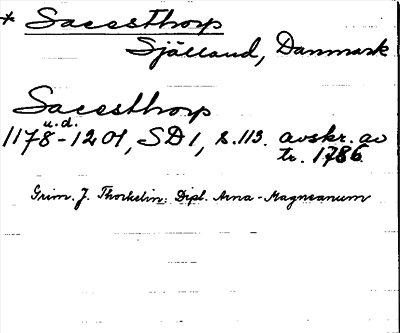 * Sacesthorp
Själland, Danmark
Sacesthorp
u.d.
1178-1201, SD1, s.113. avskr. av
tr. 1786.
Grim. J. Thorkelin: Dipl. Arna-Magnæanum